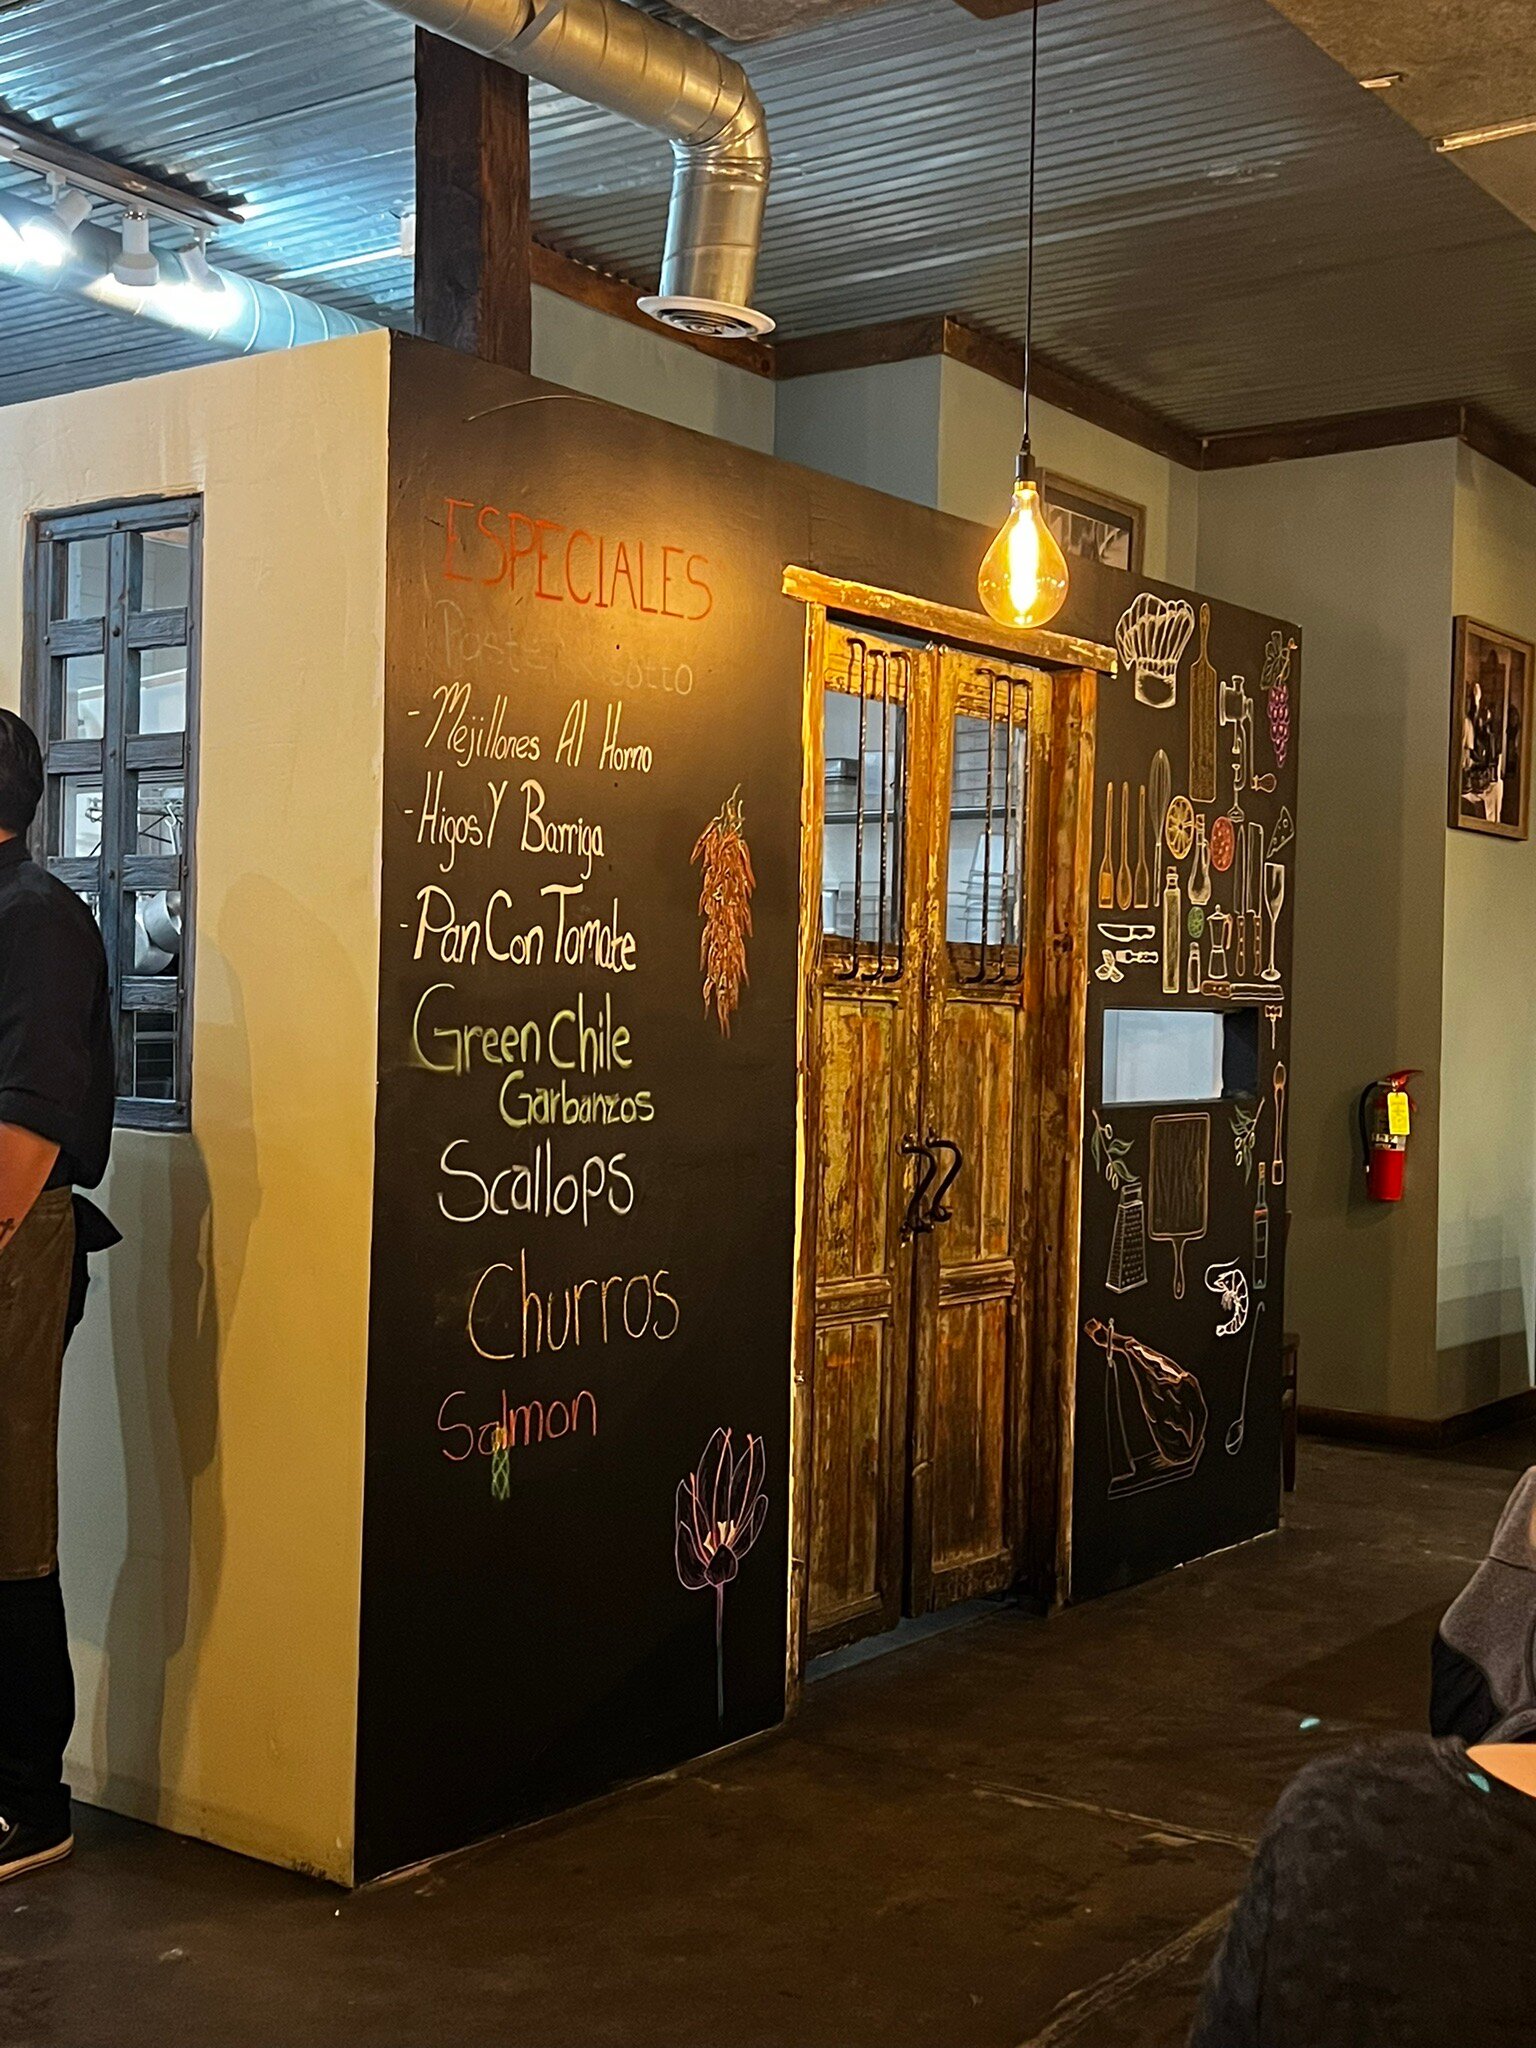 ESPECIALES
- Mejillones Al Horno
- Higos Y Barriga
- Pan Con Tomate
Green Chile
Garbanzos
Scallops
Churros
Salmon